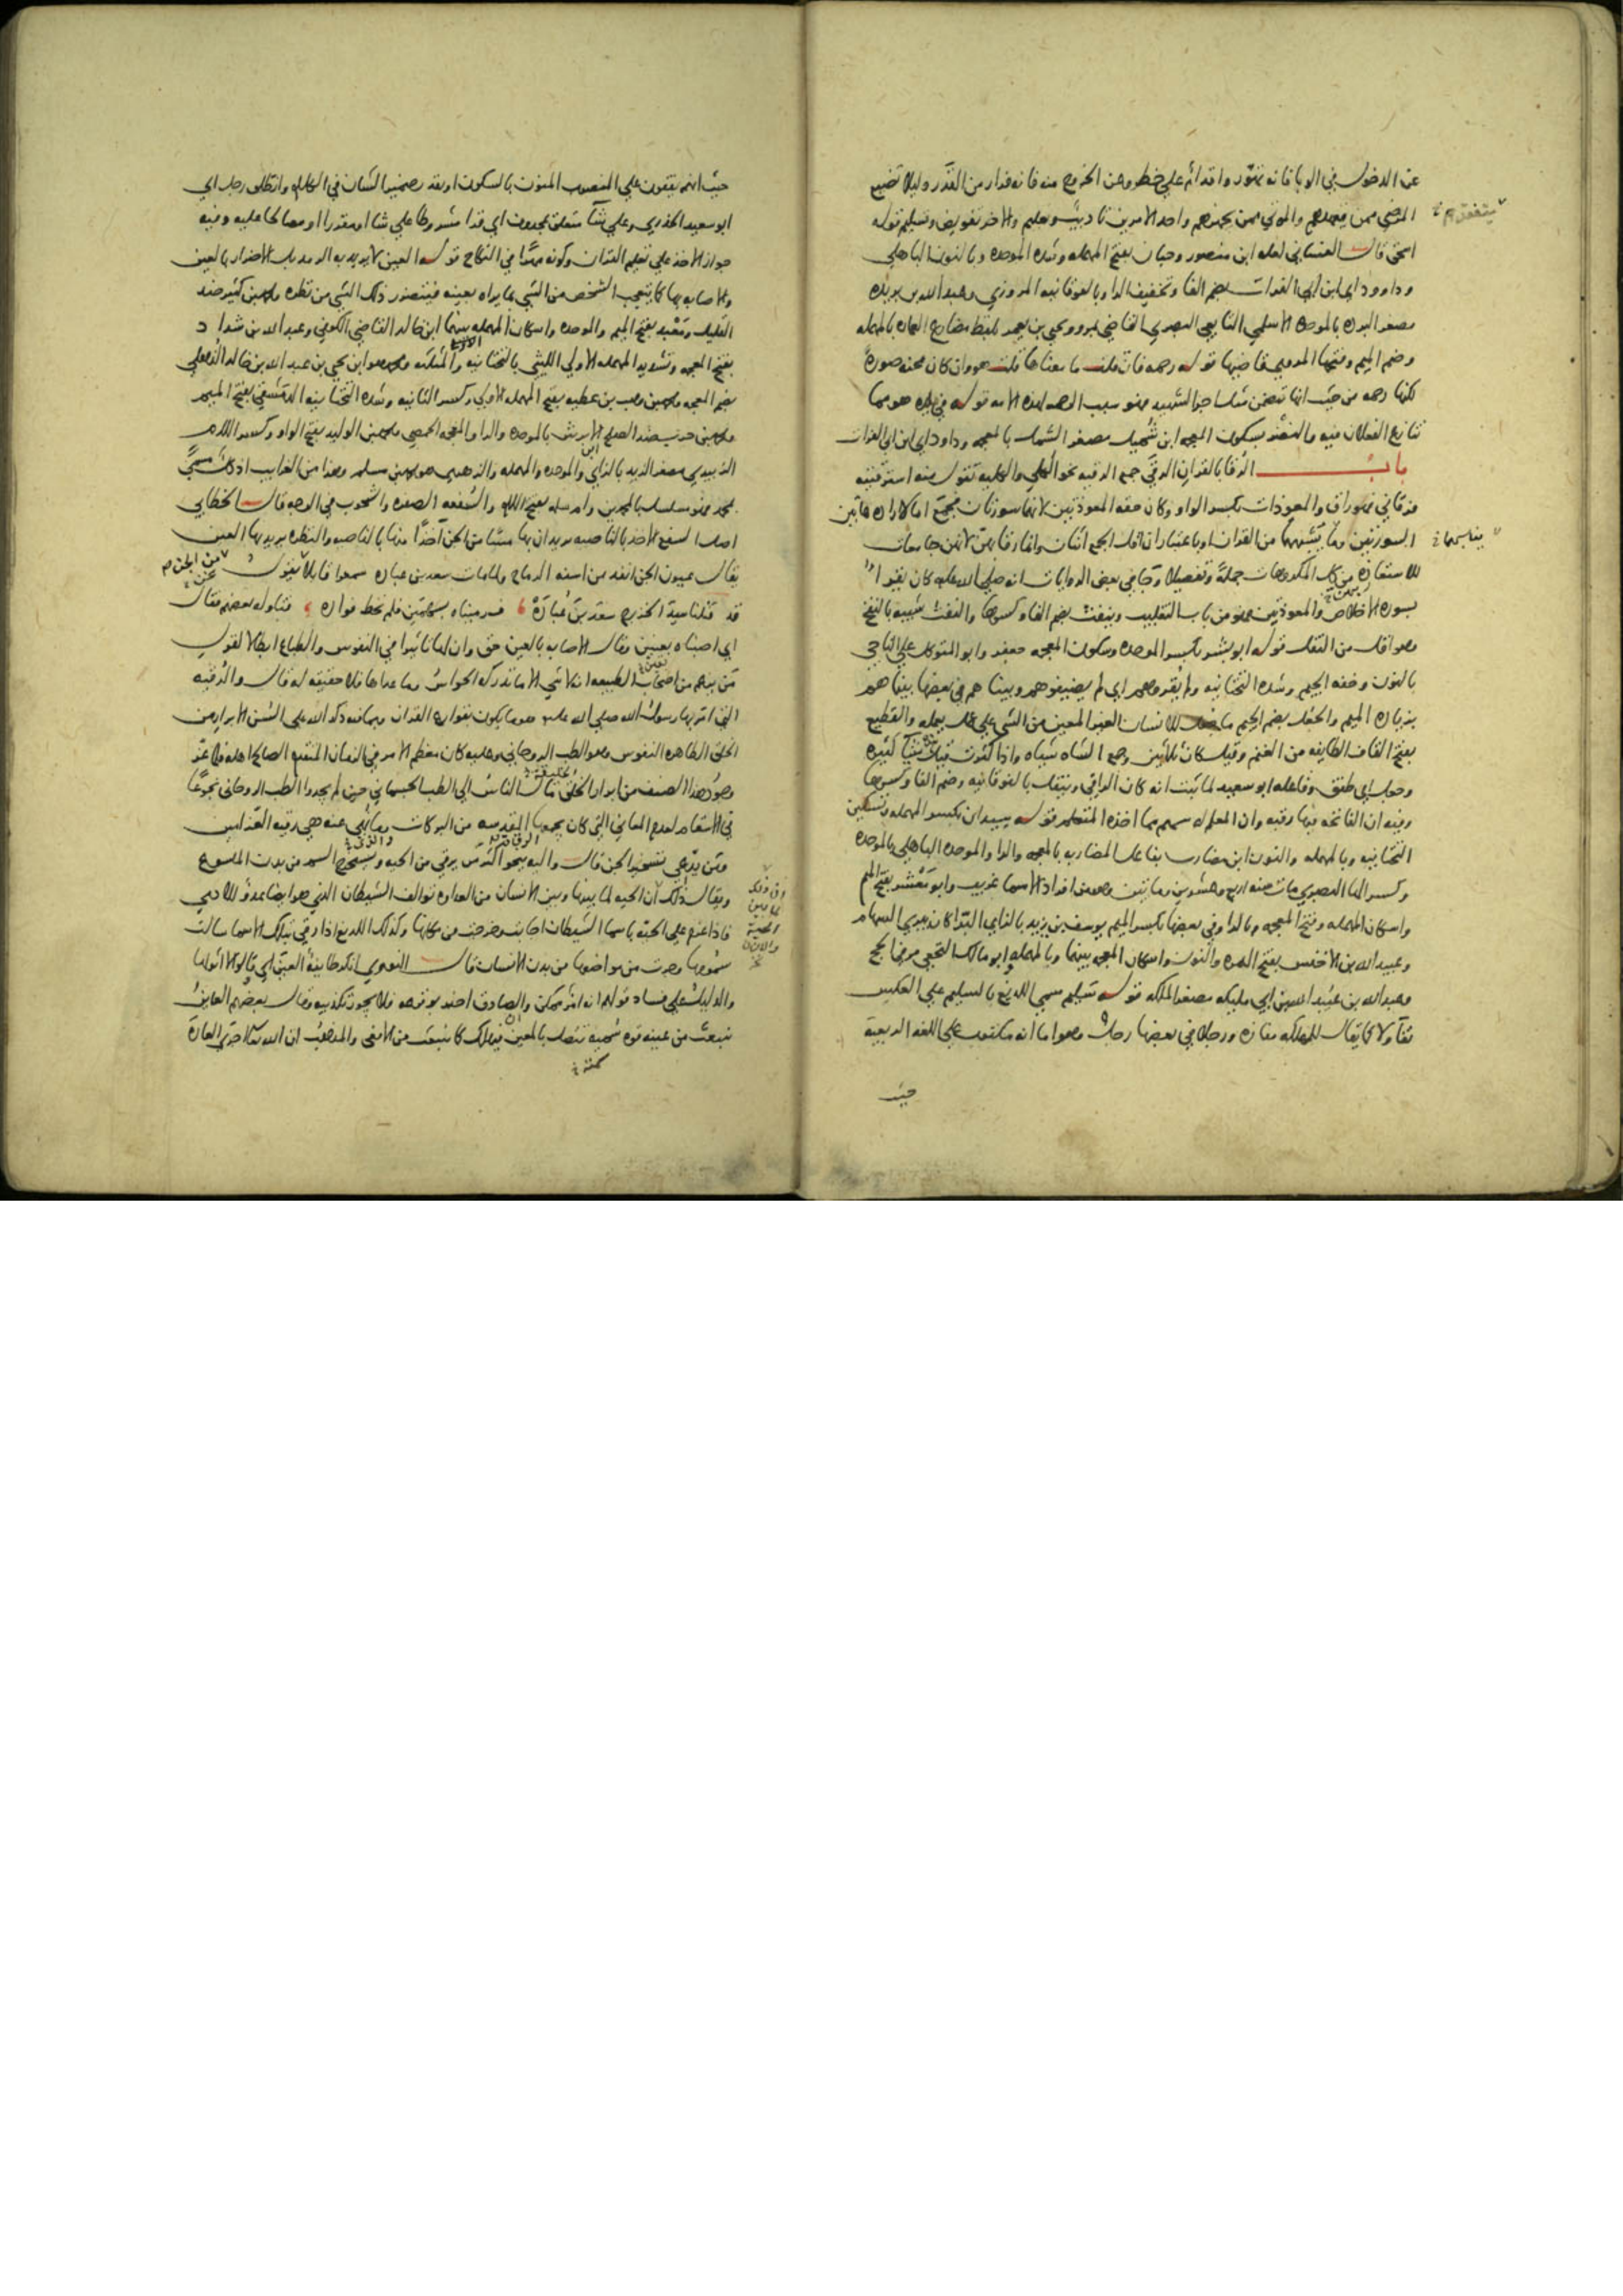 عن الدخول في الوبا فانه تهور واقدام على خطر وعن الخروج منه فانه فرار من القدر وليلا تضيع
المرضى ممن يتعهدهم والموتى ممن يجهزهم واحد الامرين تاديب وتعليم والاخر تفويض وتسليم قوله
اسحق قال الغساني لعله ابن منصور وحبان بفتح المهملة وشدة الموحدة وبالنون الباهلي
وداود اي ابن ابي الفرات بضم الفا وتخفيف الرا وبالفوقانية المروزي وعبد الله بن بريدة
مصغر البردة بالموحدة الاسلمي التابعي البصري القاضي بمرو ويحيى بن يعمر بلفظ مضارع العمارة بالمهملة
وضم الميم وفتحها المروزي قاضيها قوله رحمة فان قلت ما معناها قلت هو وان كان محنة صورة
لكنها رحمة من حيث انها تتضمن مثل اجر الشهيد فهو سبب الرحمة لهذه الامة قوله في بلده هو مما
تنازع الفعلان فيه والنضر بسكون المعجمة ابن شميل مصغر الشمل بالمعجمة وداود اي ابن ابي الفرات
باب الرقا بالقران الرقى جمع الرقية نحو الكلى والكلية تقول منه استرقيته
فرقاني فهو راق والمعوذات بكسر الواو وكان حقه المعوذتين لانهما سورتان فجمع اما لارادة هاتين
السورتين وما يشبههما من القران او باعتبار ان اقل الجمع اثنان وانما رقا بهن لانهن جامعات
للاستعاذة من كل المكروهات جملة وتفصيلا وجا في بعض الروايات انه صلى الله عليه كان يقرا
بسورة الاخلاص والمعوذتين فهو من باب التغليب وينفث بضم الفا وكسرها والنفث شبيه بالنفخ
وهو اقل من التفل قوله ابو بشر بكسر الموحدة وسكون المعجمة جعفر وابو المتوكل علي الناجي
بالنون وخفة الجيم وشدة التحتانية ولم يقروهم اي لم يضيفوهم وبينا هم في بعضها بينما هم
بزيادة الميم والجعل بضم الجيم ما يجعل للانسان المعين من الشي على عمل يعمله والقطيع
بفتح القاف الطايفة من الغنم وقيل كان ثلاثين وجمع الشاة شياه واذا كثرت قيل شاء كثيرة
وجعل اي طفق وفاعله ابو سعيد لما ثبت انه كان الراقي ويتفل بالفوقانية وضم الفا وكسرها
وفيه ان الفاتحة فيها رقية وان المعلم له سهم مما اخذه المتعلم قوله سيدان بكسر المهملة وتسكين
التحتانية وبالمهملة والنون ابن مضارب بفاعل المضاربة بالمعجمة والرا والموحدة الباهلي بالموحدة
وكسر الها البصري مات سنة اربع وعشرين ومايتين وهو من افراد الاسما غريب وابو معشر بفتح الميم
واسكان المهملة وفتح المعجمة وبالرا وفي بعضها بكسر الميم يوسف بن يزيد بالزاي البرا كان يبري السهام
وعبيد الله بن الاخنس بفتح الهمزة والنون واسكان المعجمة بينهما وبالمهملة ابو مالك النخعي مر في الحج
وعبد الله بن عبيد الله بن ابي مليكة مصغر الملكة قوله سليم سمي اللديغ بالسليم على العكس
تفاولا كما يقال للمهلكة مفازة ورجلا في بعضها رجل وهو اما انه مكتوب على اللغة الربيعية
حيث
يتفقدهم
يناسبهما
حيث انهم يقفون على المنصوب المنون بالسكون او يقدر ضمير الشان في الكلام وانطلق رجل اي
ابو سعيد الخدري وعلى شآ متعلق بمحذوف اي قرا مشروطا على شا او مقررا او مصالحا عليه وفيه
جواز الاخذ على تعليم القران وكونه مهرا في النكاح قوله العين لا يريد به الرمد بل الاضرار بالعين
والاصابة بها كما يتعجب الشخص من الشي بما يراه بعينه فيتضرر ذلك الشي من نظره ومحمد بن كثير ضد
القليل ومعبد بفتح الميم والموحدة واسكان المهملة بينهما ابن خالد القاضي الكوفي وعبد الله بن شداد
بفتح المعجمة وتشديد المهملة الاولى الليثي بالتحتانية والمثلثة ومحمد هو ابن يحيى بن عبد الله بن خالد الذهلي
بضم المعجمة ومحمد بن وهب بن عطية بفتح المهملة الاولى وكسر الثانية وشدة التحتانية الدمشقي بفتح الميم
ومحمد بن حرب ضد الصلح الابرش بالموحدة والرا والمعجمة الحمصي ومحمد بن الوليد بفتح الواو وكسر اللام
الزبيدي مصغر الزبد بالزاي والموحدة والمهملة والزهري هو محمد بن مسلم وهذا من الغرايب اذ كل مسمى
محمد فهو مسلسل بالمحمدين وام سلمة بفتح اللام والسفعة الصفرة والشحوب في الوجه قال الخطابي
اصل السفع الاخذ بالناصية يريد ان بها مسا من الجن اخذا منها بالناصية والنظرة يريد بها العين
يقال عيون الجن انفذ من اسنة الرماح ولما مات سعد بن عبادة سمعوا قايلا يقول
قد قتلنا سيد الخزرج سعد بن عبادة فرميناه بسهمين فلم نخط فواده فتاوله بعضهم فقال
اي اصبناه بعينين وقال الاصابة بالعين حق وان لها تاثيرا في النفوس والطباع ابطالا لقول
من يزعم من اصحاب الطبيعة انه لا شي الا ما تدركه الحواس وما عداها فلا حقيقة له قال والرقية
التي امر بها رسول الله صلى الله عليه هو ما يكون بقوارع القران وبما فيه ذكر الله على السن الابرار من
الخلق الطاهرة النفوس وهو الطب الروحاني وعليه كان معظم الامر في الزمان المتقدم الصالح اهله فلما عز
وجود هذا الصنف من ابرار الخلق مال الناس الى الطب الجسماني حين لم يجدوا الطب الروحاني نجوعا
في الاسقام لعدم المعاني التي كان يجمعها المقدسة من البركات وما نهي عنه هي رقية العزامين
ومن يدعي تسخير الجن قال واليه ينحو اكثر من يرقي من الحية ويستخرج السم من بدن الملسوع
ويقال ذلك ان الحية لما بينها وبين الانسان من العداوة توالف الشيطان الذي هو ايضا عدو للادمي
فاذا عزم على الحية باسما الشيطان اجابت وخرجت من مكانها وكذلك اللديغ اذا رقي بتلك الاسما سالت
سمومها وجرت من مواضعها من بدن الانسان قال النووي انكر طايفة العين اي قالوا لا اثر لها
والدليل على فساد قولهم انه امر ممكن والصادق اخبر بوقوعه فلا يجوز تكذيبه وقال بعضهم العاين
تنبعث من عينه قوة سمية تتصل بالمعين فيهلك كما تنبعث من الافعى والمذهب ان الله تعالى اجرى العادة
من الجن